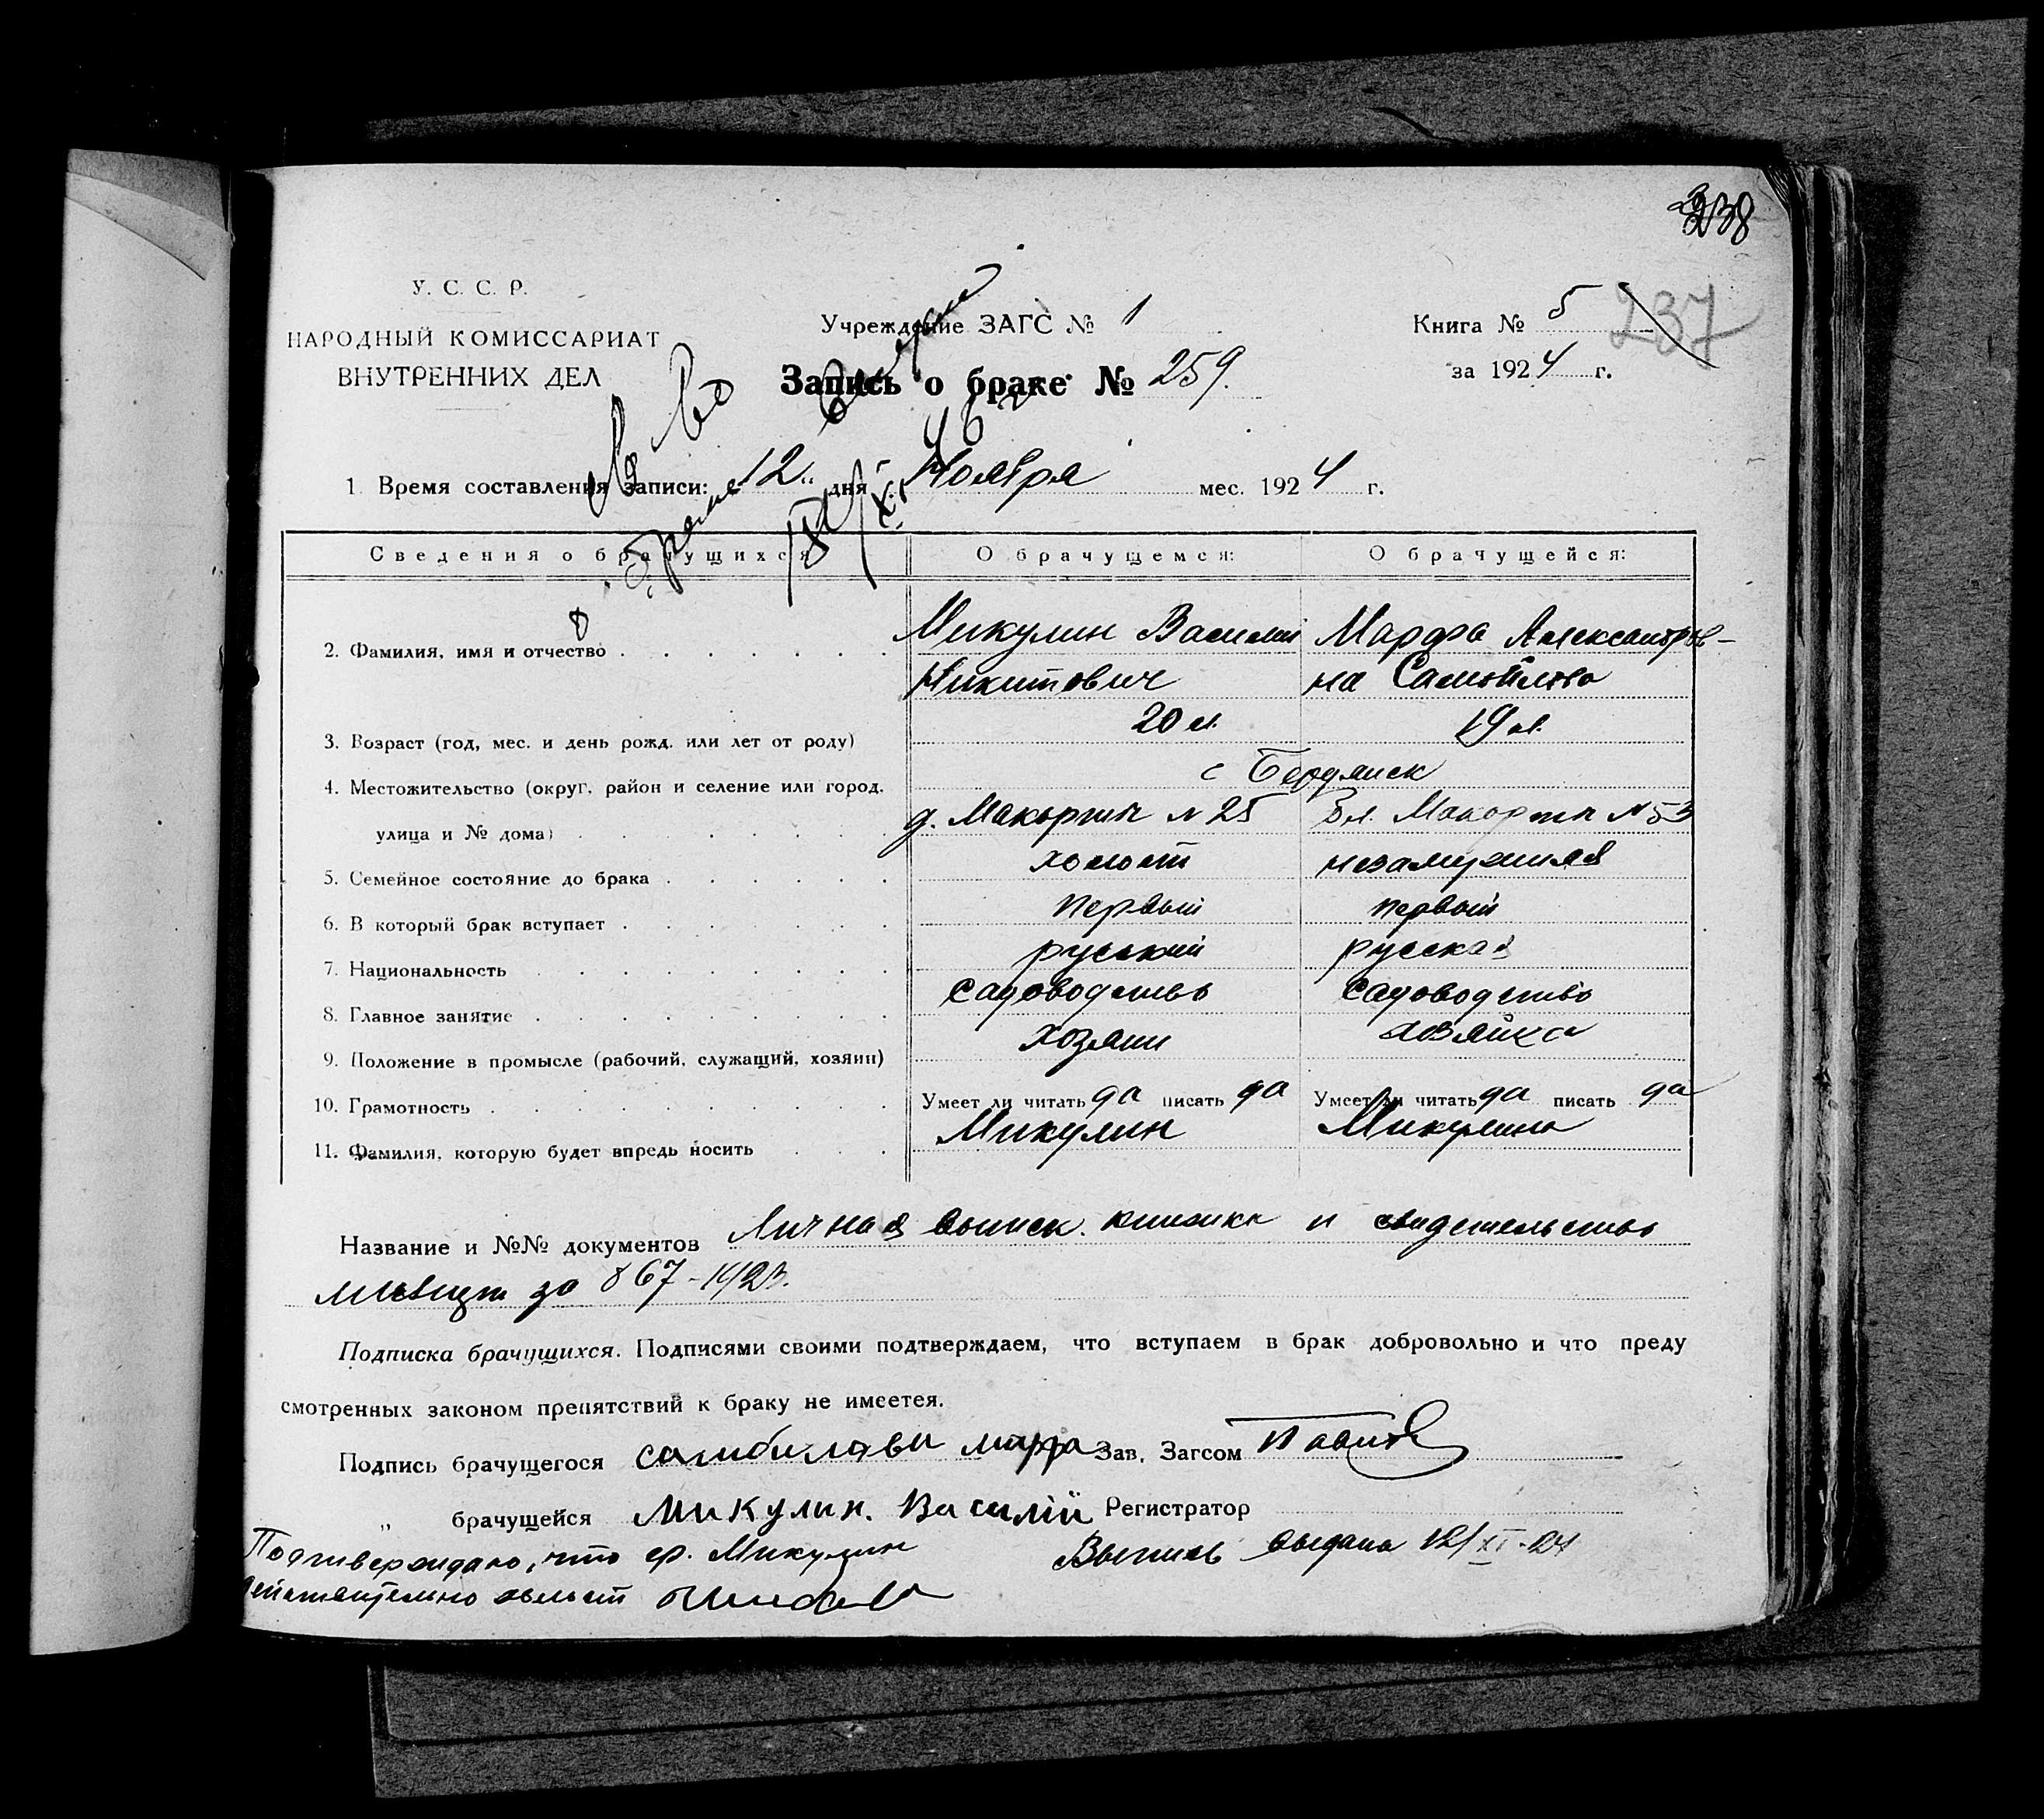 238
У. С. С. Р.
НАРОДНЫЙ КОМИССАРИАТ
ВНУТРЕННИХ ДЕЛ
Учреждение ЗАГС № 1
Книга № 5
237
за 1924 г.
Запись о браке № 259.
1 Время составления записи: „12„ дня Ноября мес. 1924 г.
Св-во о браке выдано
Сведения о брачущихся
О брачущемся:
О брачущейся:
2. Фамилия, имя и отчество
Микулин Василий
Никитович
Марфа Александров-
на Самойлова
3. Возраст (год, мес. и день рожд. или лет от роду)
20 л.
19 л.
4. Местожительство (округ, район и селение или город,
улица и № дома)
Бердянск
д. Макорти № 25
Макорти № 53
5. Семейное состояние до брака
холост
незамужняя
6. В который брак вступает
первый
первый
7. Национальность
руський
русская
8. Главное занятие
садоводство
садоводство
9. Положение в промысле (рабочий, служащий, хозяин)
хозяин
хозяйка
10. Грамотность
Умеет ли читать да писать да
Умеет ли читать да писать да
11. Фамилия, которую будет впредь носить
Микулин
Микулина
Название и №№ документов Личная воинск. книжка и свидетельство
за 867-1923.
Подписка брачущихся. Подписями своими подтверждаем, что вступаем в брак добровольно и что преду
смотренных законом препятствий к браку не имеетея.
Подпись брачущегося самойлова марфа Зав. Загсом
„ брачущейся Микулин. Василій Регистратор
Подтверждаю, что гр. Микулин
действительно холост
Выпись выдана 12/XI-24